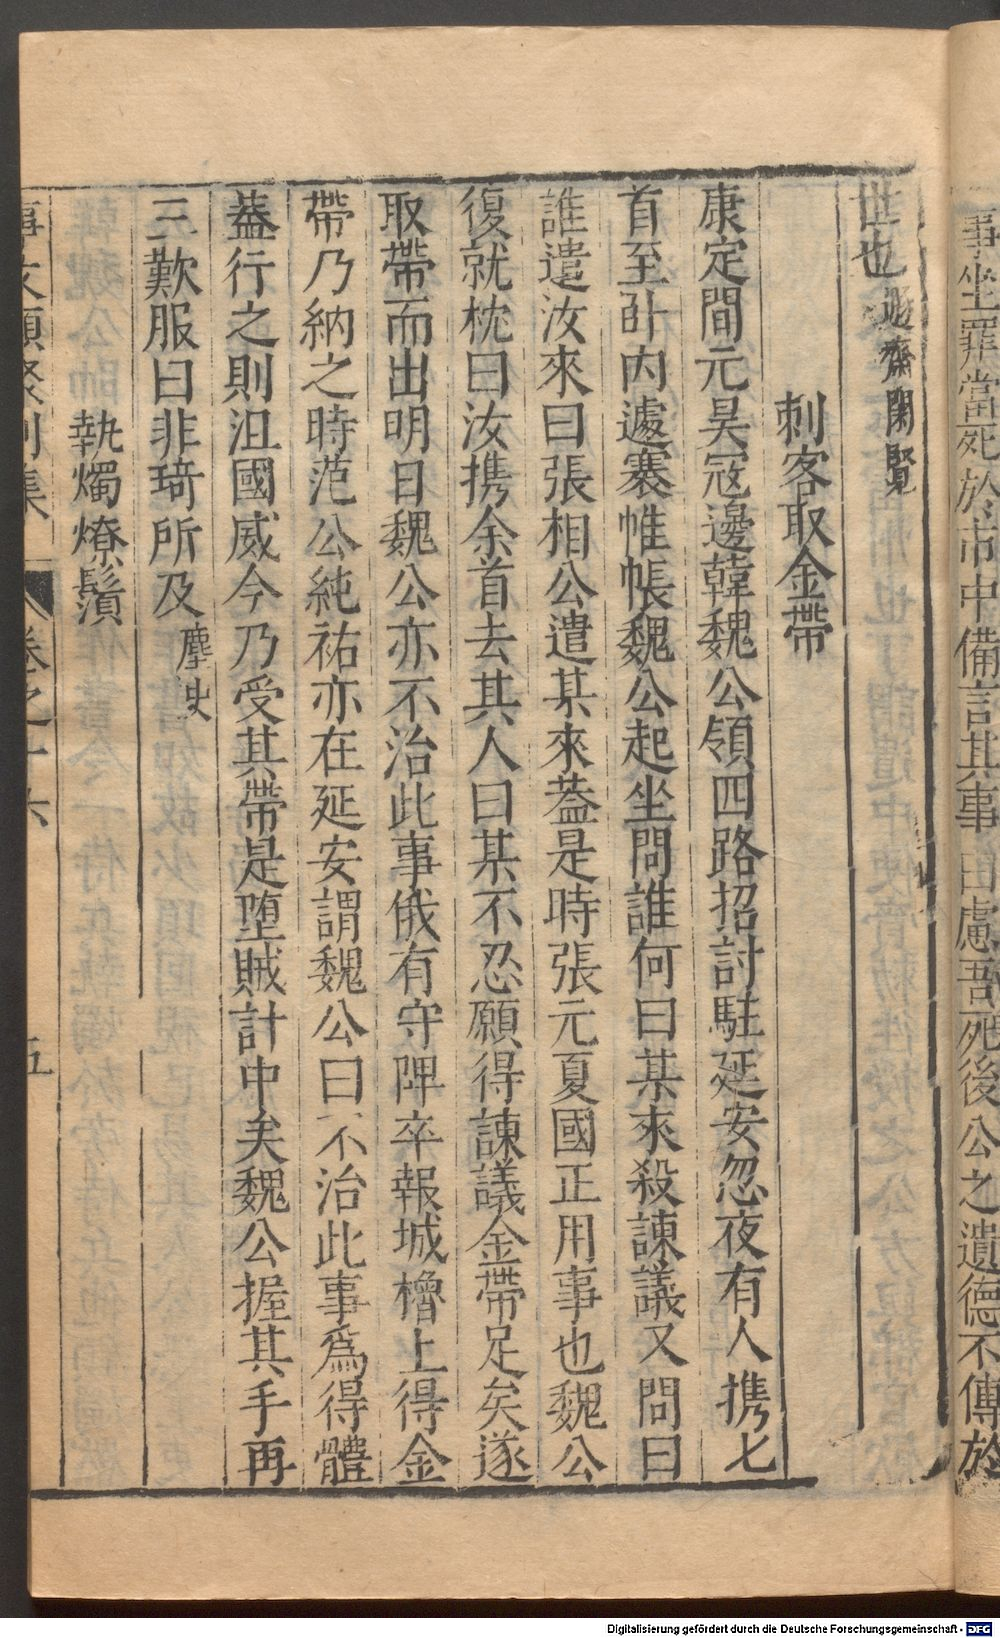 事坐罪當死於市中備言其事曰慮吾死後公之遺德不傳於
世也遯齋閑覽
刺客取金帶
康定間元昊冦邊韓魏公領四路招討駐延安忽夜有人携匕
首至卧内遽褰帷帳魏公起坐問誰何曰某來殺諫議又問曰
誰遣汝來曰張相公遣某來葢是時張元夏國正用事也魏公
復就枕曰汝携余首去其人曰某不忍願得諫議金帶足矣遂
取帶而出明日魏公亦不治此事俄有守陴卒報城櫓上得金
帶乃納之時范公純祐亦在延安謂魏公曰不治此事爲得體
葢行之則沮國威今乃受其帶是堕賊計中矣魏公握其手再
三歎服曰非琦所及麈史
執燭燎鬚
事文類聚别集 卷之十六 五
Digitalisierung gefördert durch die Deutsche Forschungsgemeinschaft - DFG